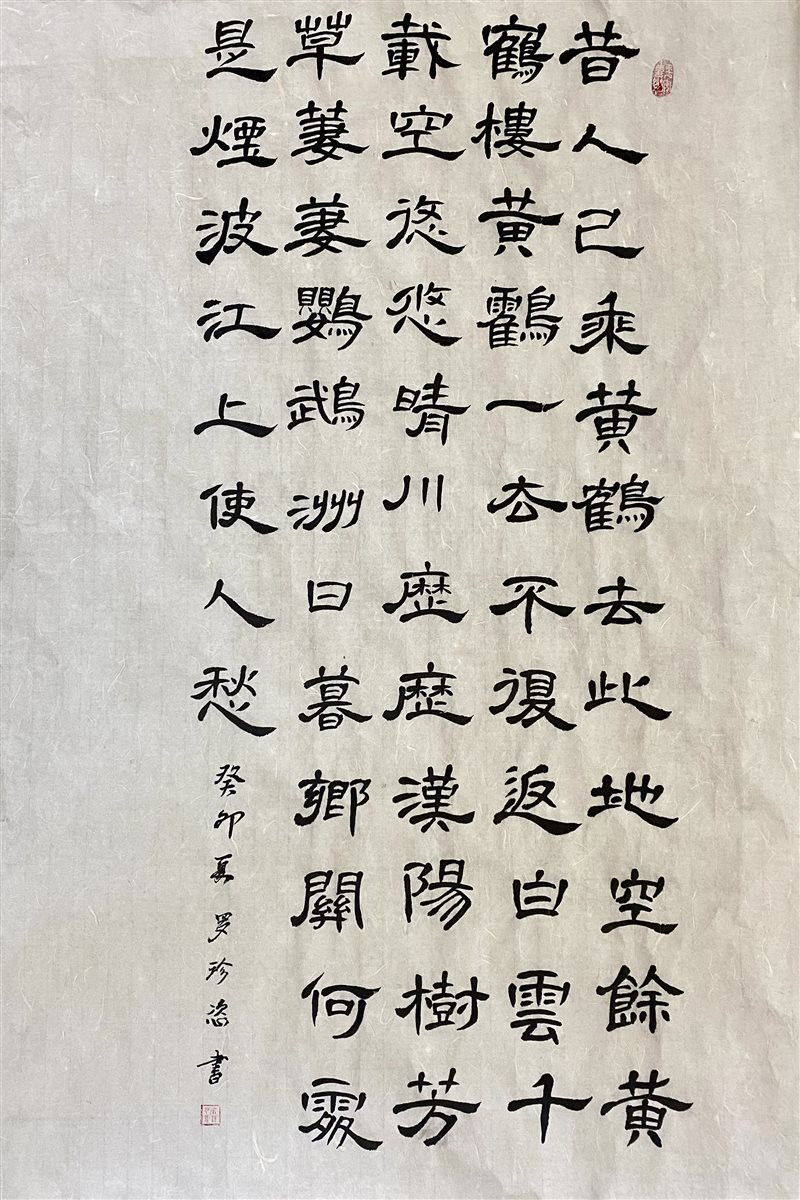 昔人已乘黃鶴去此地空餘黃
鶴樓黃鸖一去不復返白雲千
載空悠悠晴川歷歷漢陽樹芳
草萋萋鸚鵡洲日暮鄉關何處
是煙波江上使人愁
癸卯夏罗珍恣書